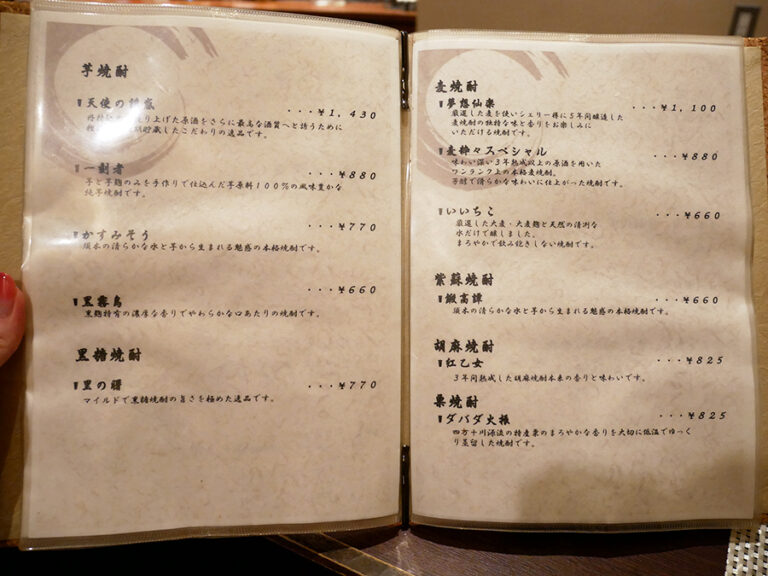 芋焼酎
天使の誘惑
・・・¥1,430
上げた原酒をさらに最高な酒質へと誘うために
貯蔵したこだわりの逸品です。
一刻者
・・・¥880
芋と芋麹のみを手作りで仕込んだ芋原料100%の風味豊かな
純芋焼酎です。
かすみそう
・・・¥770
須木の清らかな水と芋から生まれる魅惑の本格焼酎です。
黒霧島
・・・¥660
黒麹特有の濃厚な香りでやわらかな口あたりの焼酎です。
黒糖焼酎
里の曙
・・・¥770
マイルドで黒糖焼酎の旨さを極めた逸品です。
麦焼酎
夢想仙楽
・・・¥1,100
厳選した麦を使いシェリー樽に5年間醸造した
麦焼酎の独特な味と香りをお楽しみに
いただける焼酎です。
麦粋々スペシャル
・・・¥880
味わい深い3年熟成以上の原酒を用いた
ワンランク上の本格麦焼酎。
芳醇で清らかな味わいに仕上がった焼酎です。
いいちこ
・・・¥660
厳選した大麦・大麦麹と天然の清冽な
水だけで醸しました。
まろやかで飲み飽きしない焼酎です。
紫蘇焼酎
鍛高譚
・・・¥660
須木の清らかな水と芋から生まれる魅惑の本格焼酎です。
胡麻焼酎
紅乙女
・・・¥825
3年間熟成した胡麻焼酎本来の香りと味わいです。
栗焼酎
ダバダ火振
・・・¥825
四万十川源流の特産栗のまろやかな香りを大切に低温でゆっく
り蒸留した焼酎です。